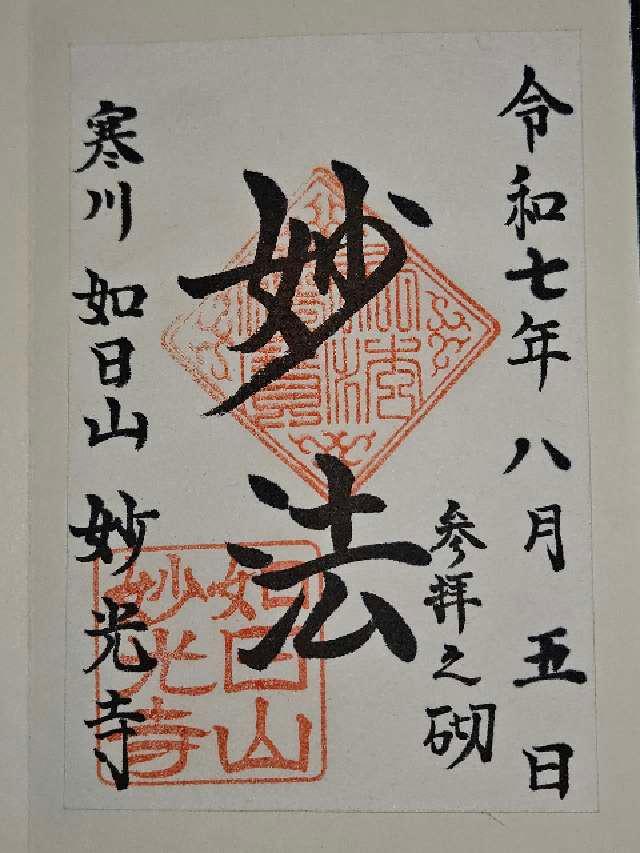 令和七年 八月 五日
参拝之砌
妙法
寒川 如日山 妙光寺
如日山
妙光寺